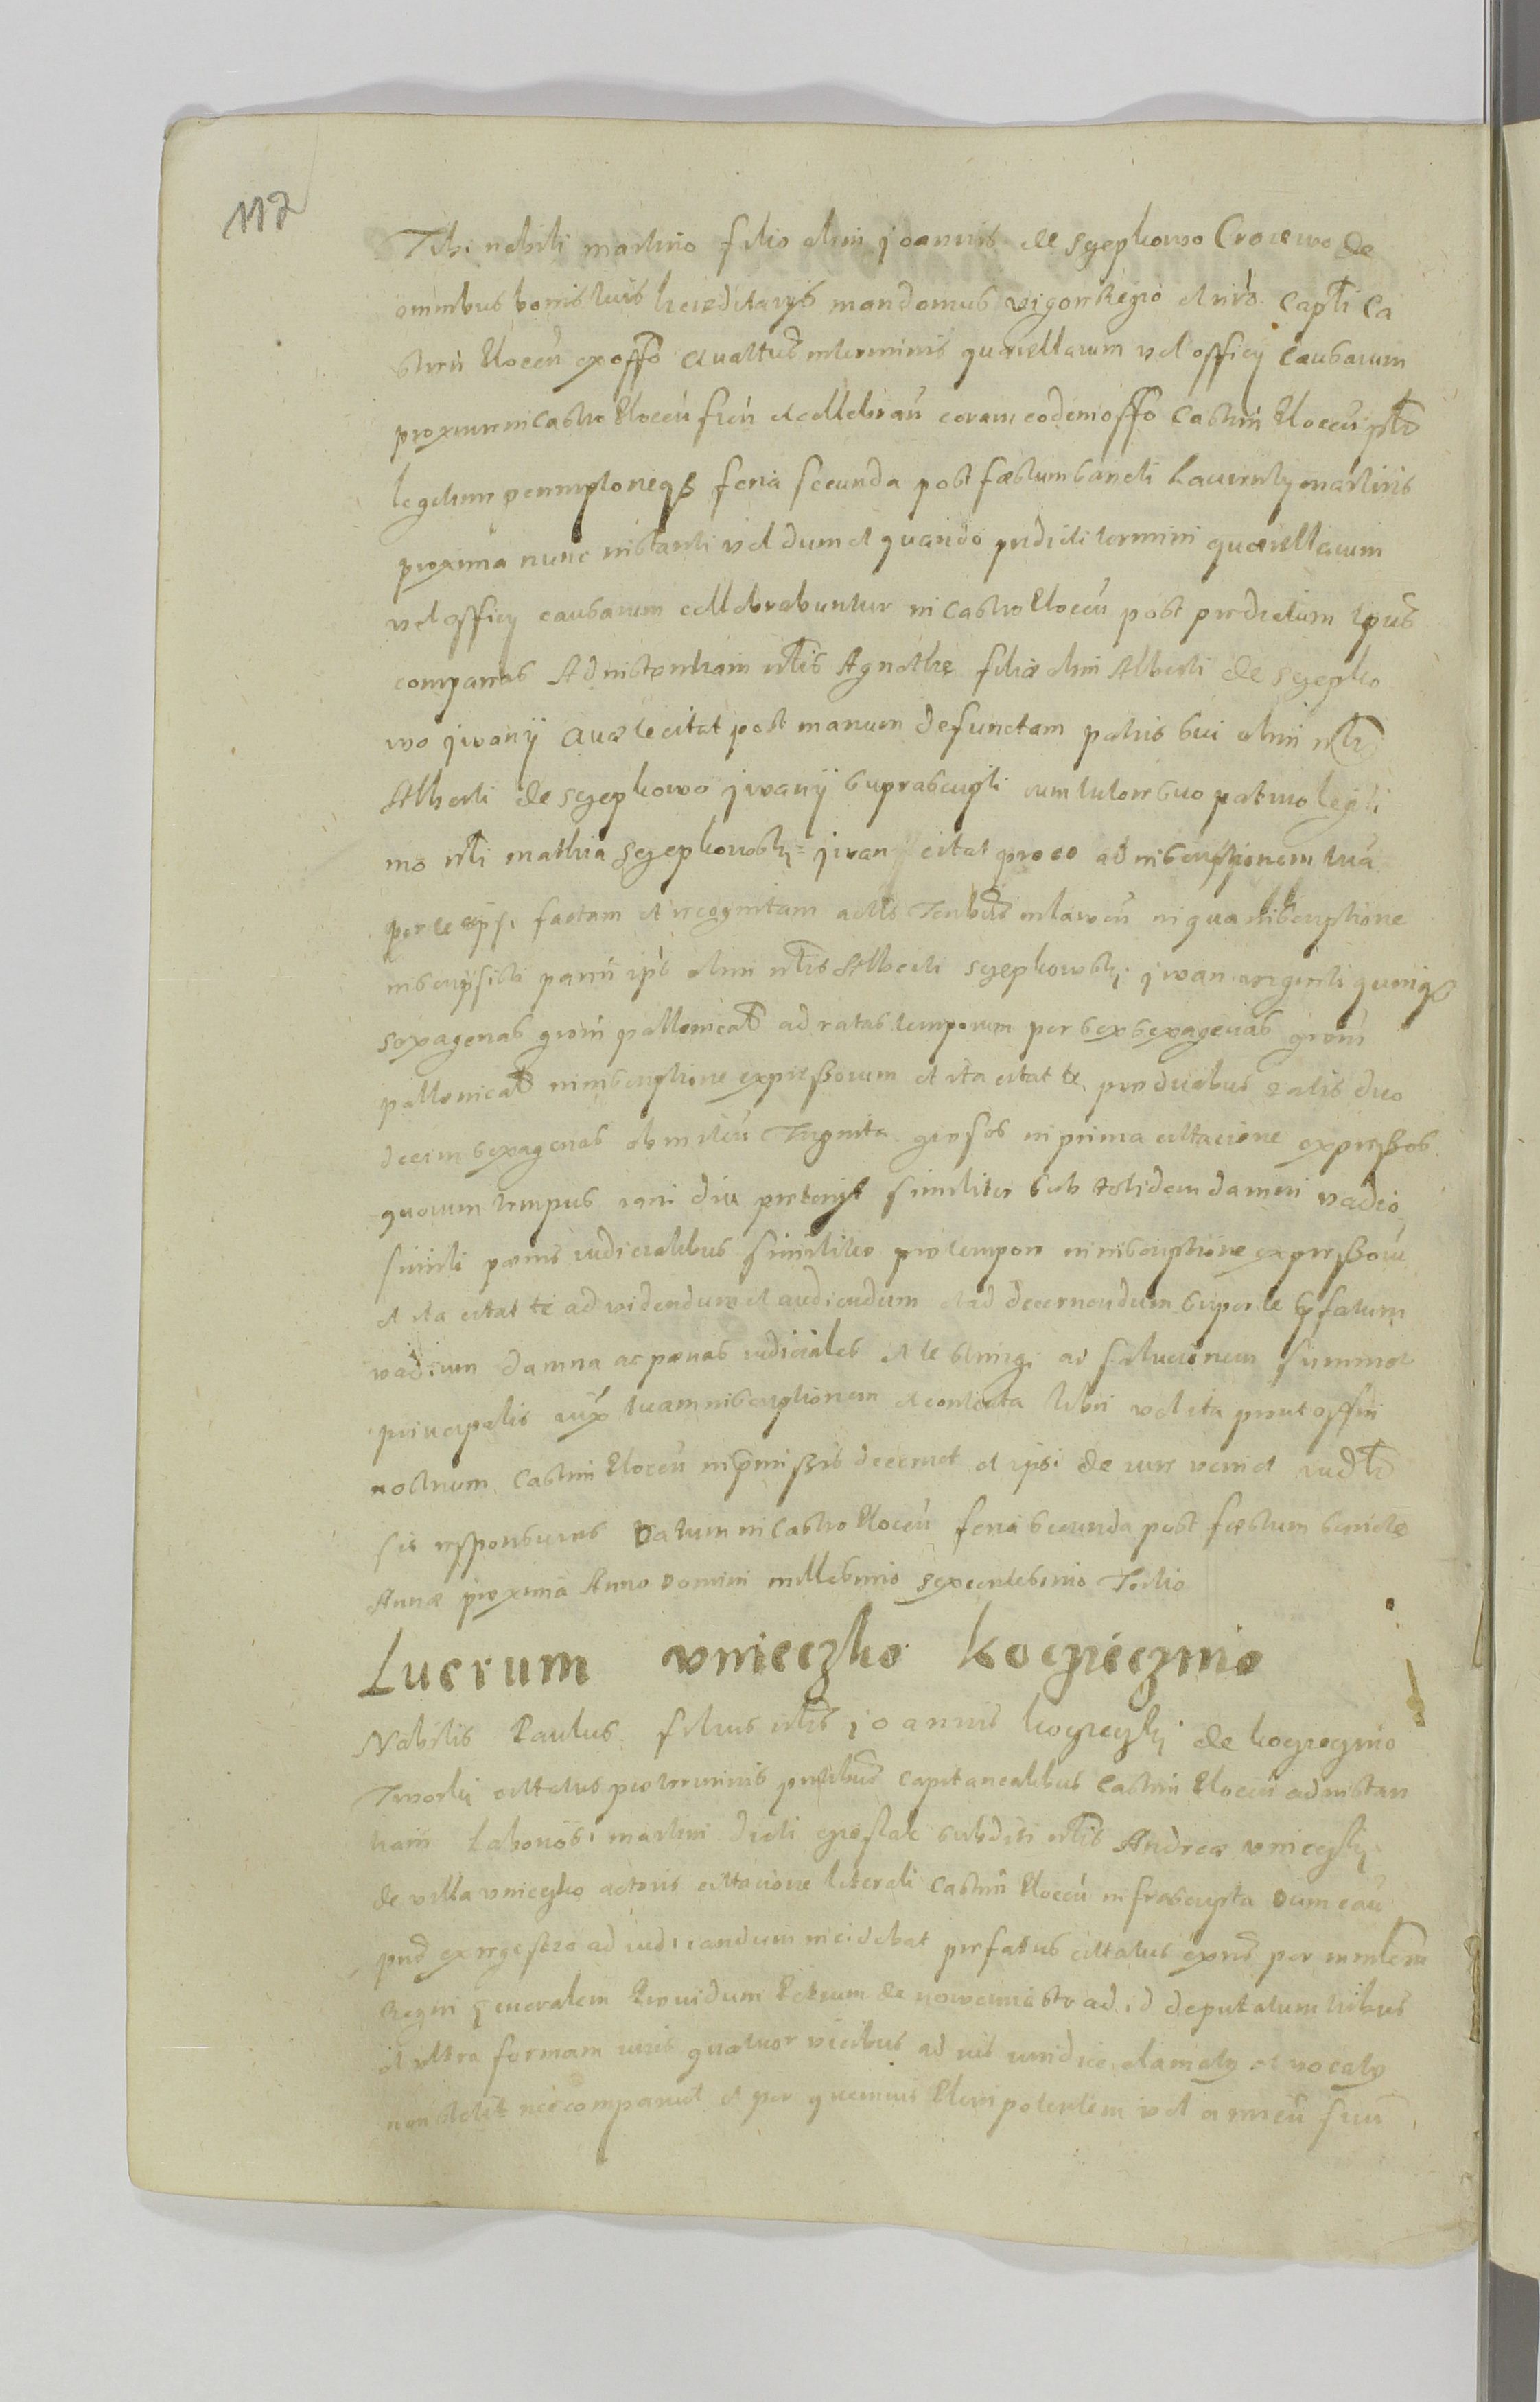 112
Tibi nobili martino filio olim joannis de sczepkowo Crocewo de
omnibus bonis tuis hereditarijs mandamus vigore Regio et nro Capti Ca
strii Plocen ex offo quattus in terminis quaerellarum vel officij causarum
proxime in Castro Plocen fien et cellebran coram eodem offo Castrii Plocen
legitime peremptorieqz feria secunda post festum sancti Laurentij martiris
proxima nunc instanti vel dum et quando predicti termini quaerellarum
vel officij causarum cellebrabuntur in Castro Plocen post predictum tpus
compareas Ad instantiam nlis Agnethe filiae olim Alberti de sczepko
wo jwany Quae te citat post manum defunctam patris sui olim nlis
Alberti de sczepkowo jwany suprascripti cum tutore suo patruo legiti
mo nli mathia sczepkowski jwany citat pro eo ad inscriptionem tua
per te ipsi factam et recognitam actis Tenbus mlawen in qua inscriptione
inscripsisti patri ips olim nlis Alberti sczepkowski jwan argenti quinqz
sexagenas groru pollonical ad ratas temporum per sex sexagenas groru
pollonical in inscriptione expressorum et ita citat te pro duabus ratis duo
decim sexagenas Triginta grosos in prima citacione expressos
quorum tempus iam diu preteriit similiter sub totidem damni vadio
simili penis iudicialibus similiter pro tempore in inscriptione expressoru
et ita citat te ad videndum et audiendum et ad decernendum super te ipsarum
vadium damna ac paenas iudiciales et te stringi ad solucionem summae
principalis iux tuam inscriptionem et contenta libri vel ita prout offm
nostrum Castrin Plocen in premissis decernet et ipsi de iure veniet iudlr
sis responsurus Datum in Castro Plocen feria secunda post festum sanctae
Annae proxima Anno Domini millesimo sexcentesimo Tertio
Lucrum vnieczko koczieczmio
Nobilis Paulus filius nlis joannis koczieczki de koczieczmio
Tworki cittatus pro terminis pntibus capitanealibus Castrin Plocen ad instan
tiam Laboriosi martini dicti subditi nlis Andreae vnieczki
de villa vnieczko actoris cittacione literali Castrin Plocen infrascripta Dum cau
pns ex regestro ad iudicandum incidebat prefatus cittatus per mnlem
Regni generalem Providum Petrum de ad id deputatum tribus
et vltra formam iuris quatuor vicibus ad ius iuridice clamatus et vocatus
non stetit nec comparuit et per quemuis Plenipotentem vel amicu suu